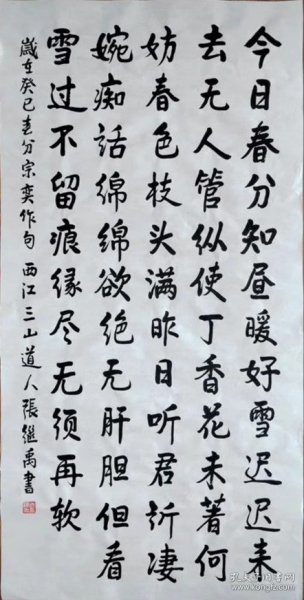 今日春分知昼暖好雪迟迟来
去无人管纵使丁香花未著何
妨春色枝头满昨日听君诉凄
婉痴话绵绵欲绝无肝胆但看
雪过不留痕缘尽无须再软
歲在癸巳春分宗奕作句 西江三山道人張继禹書